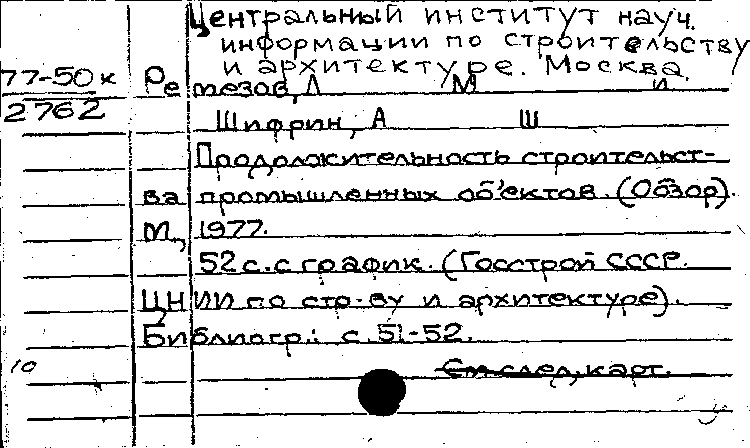 Центральный институт науч.
информации по строительству
и архитектуре. Москва.
77-50к Ретезов, Л М и
2762
Шифрин, А Ш
Продолжительность строительст-
ва промышленных объектов. (Обзор).
М., 1977.
52 с. с график. (Госстрой СССР.
ЦНИИ по стр-ву и архитектуре).
Библиогр.: с. 51-52.
10
См. след. карт.